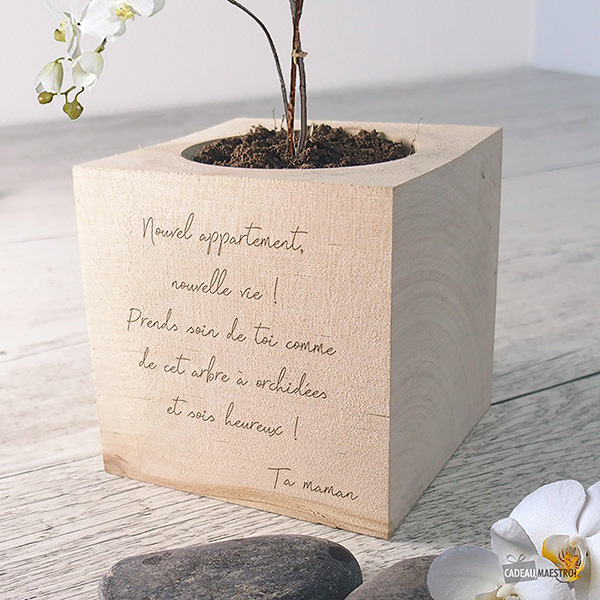 Nouvel appartement,
nouvelle vie !
Prends soin de toi comme
de cet arbre à orchidées
et sois heureux !
Ta maman
CADEAU MAESTRO